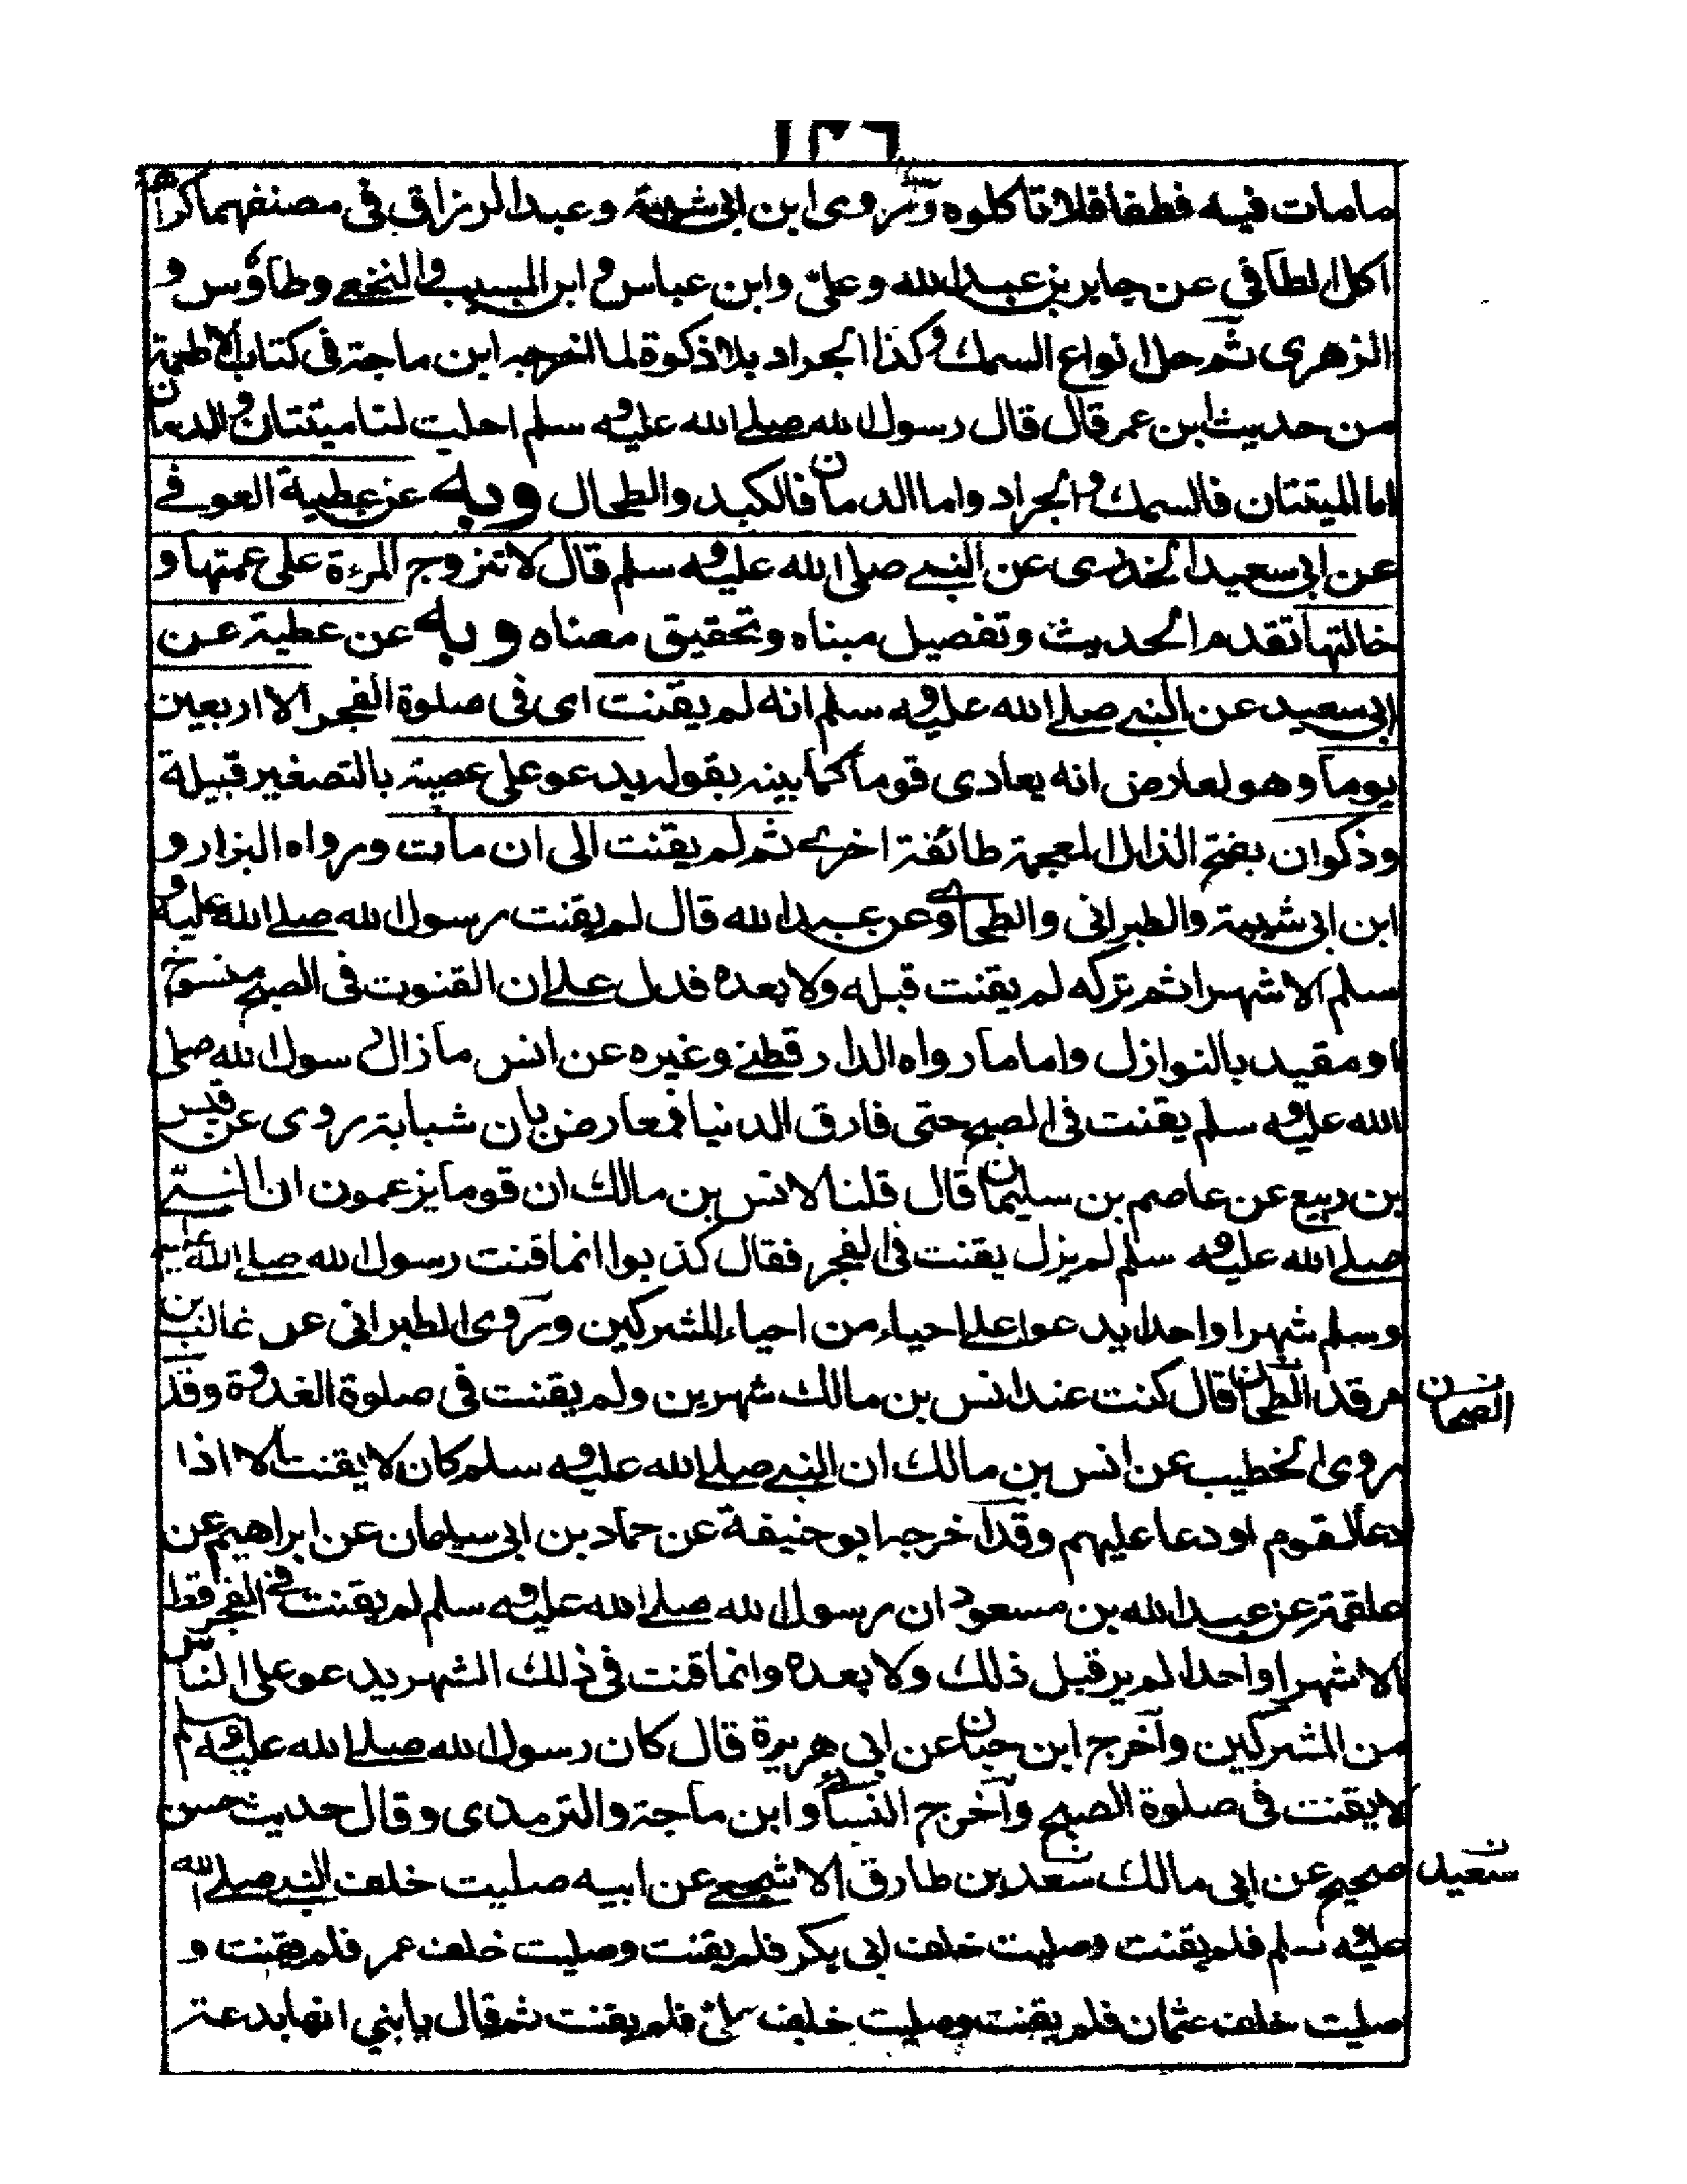 ١٣٦
مامات فيه فطفا فلا تاكلوه وروى ابن ابى شيبة وعبد الرزاق فى مصنفهما كراهة
اكل الطافي عن جابر بن عبد الله وعلىّ وابن عباس و ابن المسيب و النخعي وطاؤس و
الزهرى ثم حل انواع السمك وكذا الجراد بلا ذكوة لما اخرجه ابن ماجة فى كتاب الاطعمة
من حديث ابن عمر قال قال رسول الله صلى الله عليه و سلم احلت لنا ميتتان و الدمان
اما الميتتان فالسمك و الجراد واما الدمان فالكبد والطحال وبه عن عطية العوفي
عن ابى سعيد الخدرى عن النبي صلى الله عليه و سلم قال لا تزوج المرءة على عمتها و
خالتها تقدم الحديث وتفصيل مبناه وتحقيق معناه وبه عن عطية عن
ابى سعيد عن النبي صلى الله عليه و سلم انه لم يقنت اى فى صلوة الفجر الا اربعين
يوما وهو لعارض انه يعادى قوما كما بينه بقوله يدعو على عصية بالتصغير قبيلة
وذكوان بفتح الذال المعجمة طائفة اخرى ثم لم يقنت الى ان مات ورواه البزار و
ابن ابى شيبة والطبرانى والطحاوى وعن عبد الله قال لم يقنت رسول الله صلى الله عليه و
سلم الا شهرا ثم تركه لم يقنت قبله ولا بعده فدل على ان القنوت فى الصبح منسوخ
او مقيد بالنوازل واما ما رواه الدارقطني وغيره عن انس ما زال رسول الله صلى
الله عليه و سلم يقنت فى الصبح حتى فارق الدنيا فمعارض بان شبابة روى عن قيس
بن ربيع عن عاصم بن سليمان قال قلنا لانس بن مالك ان قوما يزعمون ان النبي
صلى الله عليه و سلم لم يزل يقنت فى الفجر فقال كذبوا انما قنت رسول الله صلى الله عليه
وسلم شهرا واحدا يدعوا على احياء من احياء المشركين وروى الطبرانى عن غالب بن
فرقد الطحان قال كنت عند انس بن مالك شهرين ولم يقنت فى صلوة الغدوة وقد
روى الخطيب عن انس بن مالك ان النبي صلى الله عليه و سلم كان لا يقنت الا اذا
دعا لقوم او دعا عليهم وقد اخرجه ابو حنيفة عن حماد بن ابى سليمان عن ابراهيم عن
علقمة عن عبد الله بن مسعود ان رسول الله صلى الله عليه و سلم لم يقنت في الفجر قط
الا شهرا واحدا لم ير قبل ذلك ولا بعده وانما قنت فى ذلك الشهر يدعو على الناس
من المشركين وآخرج ابن حبان عن ابى هريرة قال كان رسول الله صلى الله عليه وسلم
لا يقنت فى صلوة الصبح وآخرج النسائى وابن ماجة والترمذى وقال حديث حسن
صحيح عن ابى مالك سعد بن طارق الاشجعي عن ابيه صليت خلف النبي صلى الله
عليه و سلم فلم يقنت وصليت خلف ابى بكر فلم يقنت وصليت خلف عمر فلم يقنت و
صليت خلف عثمان فلم يقنت وصليت خلف علىّ فلم يقنت ثم قال يا بني انها بدعة
سعيد